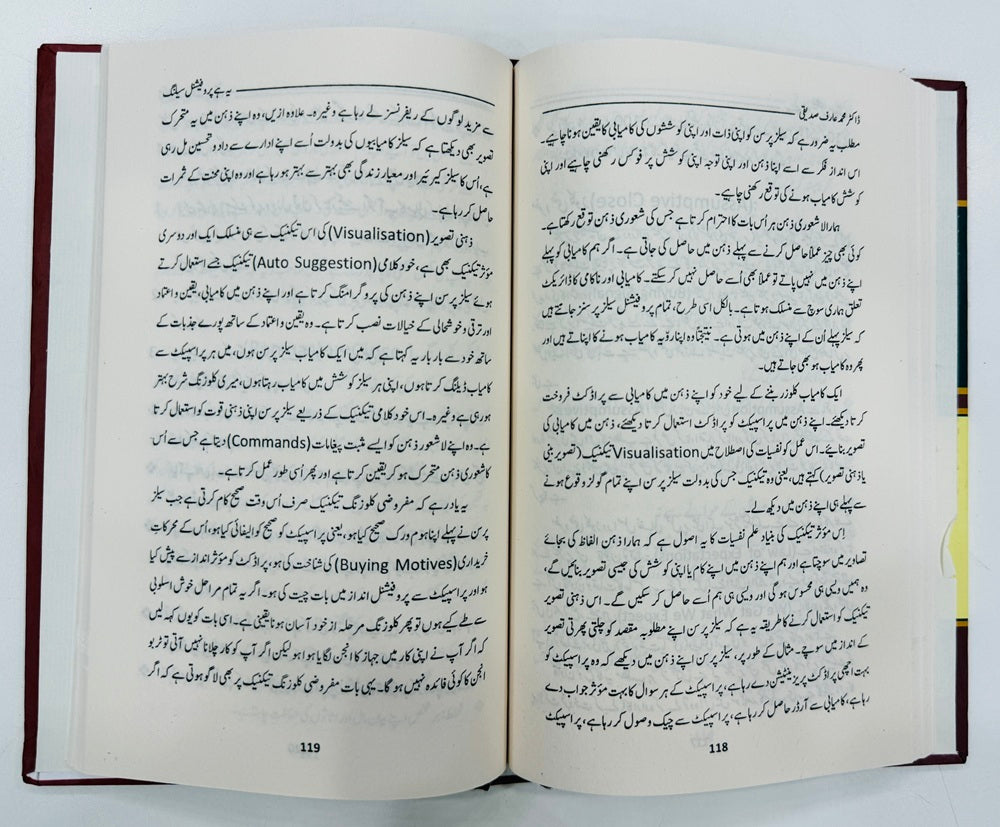 ڈاکٹر محمد عارف صدیقی
مطلب یہ ضرور ہے کہ سیلز پرسن کو اپنی ذات اور اپنی کوششوں کی کامیابی کا یقین ہونا چاہیے۔
اس انداز فکر سے اسے اپنا ذہن اور اپنی توجہ اپنی کوشش پر فوکس رکھنی چاہیے اور اپنی
کوشش کامیاب ہونے کی توقع رکھنی چاہیے۔
ہمارا لا شعوری ذہن ہر اُس بات کا احترام کرتا ہے جس کی شعوری ذہن توقع رکھتا ہے۔
کوئی بھی چیز عملاً حاصل کرنے سے پہلے ذہن میں حاصل کی جاتی ہے۔ اگر ہم کامیابی کو پہلے
اپنے ذہن میں نہیں پاتے تو عملاً بھی اُسے حاصل نہیں کر سکتے۔ کامیابی اور ناکامی کا ڈائریکٹ
تعلق ہماری سوچ سے منسلک ہوتا ہے۔ بالکل اسی طرح، تمام پروفیشنل سیلز پرسنز جانتے ہیں
کہ سیلز پہلے اُن کے اپنے ذہن میں ہوتی ہے۔ نتیجتاً وہ اپنا رویّہ کامیاب ہونے کا اپناتے ہیں اور
پھر وہ کامیاب ہو بھی جاتے ہیں۔
ایک کامیاب کلوزر بننے کے لیے خود کو اپنے ذہن میں کامیابی سے پراڈکٹ فروخت
کرتا دیکھئے۔ اپنے ذہن میں پراسپیکٹ کو پراڈکٹ استعمال کرتا دیکھئے، ذہن میں کامیابی کی
تصویر بنایئے۔ اس عمل کو نفسیات کی اصطلاح میں Visualisation ٹیکنیک (تصویر بینی
یا ذہنی تصویر) کہتے ہیں، یعنی وہ ٹیکنیک جس کی بدولت سیلز پرسن اپنے تمام گولز وقوع ہونے
سے پہلے ہی اپنے ذہن میں دیکھ لے۔
اِس مؤثر ٹیکنیک کی بنیاد علم نفسیات کا یہ اصول ہے کہ ہمارا ذہن الفاظ کی بجائے
تصاویر میں سوچتا ہے اور ہم اپنے ذہن میں اپنے کام یا اپنی کوشش کی جیسی تصویر بنائیں گے،
وہ ہمیں ویسی ہی محسوس ہوگی اور ویسی ہی ہم اُسے حاصل کر سکیں گے۔ اس ذہنی تصویر
ٹیکنیک کو استعمال کرنے کا طریقہ یہ ہے کہ سیلز پرسن اپنے مطلوبہ مقصد کو چلتی پھرتی تصویر
کے انداز میں سوچے۔ مثال کے طور پر، سیلز پرسن اپنے ذہن میں دیکھے کہ وہ پراسپیکٹ کو
بہت اچھی پراڈکٹ پریزینٹیشن دے رہا ہے، پراسپیکٹ کے ہر سوال کا بہت مؤثر جواب دے
رہا ہے، کامیابی سے آرڈر حاصل کر رہا ہے، پراسپیکٹ سے چیک وصول کر رہا ہے، پراسپیکٹ
118
یہ ہے پروفیشنل سیلنگ
سے مزید لوگوں کے ریفرنسز لے رہا ہے وغیرہ۔ علاوہ ازیں، وہ اپنے ذہن میں یہ متحرک
تصویر بھی دیکھتا ہے کہ سیلز کامیابیوں کی بدولت اُسے اپنے ادارے سے داد و تحسین مل رہی
ہے، اُس کا سیلز کیرئیر اور معیار زندگی بھی بہتر سے بہتر ہو رہا ہے اور وہ اپنی محنت کے ثمرات
حاصل کر رہا ہے۔
ذہنی تصویر (Visualisation) کی اس ٹیکنیک سے ہی منسلک ایک اور دوسری
مؤثر ٹیکنیک بھی ہے، خود کلامی (Auto Suggestion) ٹیکنیک جسے استعمال کرتے
ہوئے سیلز پرسن اپنے ذہن کی پروگرامنگ کرتا ہے اور اپنے ذہن میں کامیابی، یقین و اعتماد
اور ترقی و خوشحالی کے خیالات نصب کرتا ہے۔ وہ یقین و اعتماد کے ساتھ پورے جذبات کے
ساتھ خود سے بار بار یہ کہتا ہے کہ میں ایک کامیاب سیلز پرسن ہوں، میں ہر پراسپیکٹ سے
کامیاب ڈیلنگ کرتا ہوں، اپنی ہر سیلز کوشش میں کامیاب رہتا ہوں، میری کلوزنگ شرح بہتر
ہو رہی ہے وغیرہ۔ اس خود کلامی ٹیکنیک کے ذریعے سیلز پرسن اپنی ذہنی قوت کو استعمال کرتا
ہے۔ وہ اپنے لا شعور ذہن کو ایسے مثبت پیغامات (Commands) دیتا ہے جس سے اُس
کا شعوری ذہن متحرک ہو کر یقین کرتا ہے اور پھر اُسی طور عمل کرتا ہے۔
یہ یاد رہے کہ مفروضی کلوزنگ ٹیکنیک صرف اُس وقت صحیح کام کرتی ہے جب سیلز
پرسن نے پہلے اپنا ہوم ورک صحیح کیا ہو، یعنی پراسپیکٹ کو صحیح کوالیفائی کیا ہو، اُس کے محرکاتِ
خریداری (Buying Motives) کی شناخت کی ہو، پراڈکٹ کو مؤثر انداز سے پیش کیا
ہو اور پراسپیکٹ سے پروفیشنل انداز میں بات چیت کی ہو۔ اگر یہ تمام مراحل خوش اسلوبی
سے طے کیے ہوں تو پھر کلوزنگ مرحلہ از خود آسان ہونا یقینی ہے۔ اسی بات کو یوں کہہ لیں
کہ اگر آپ نے اپنی کار میں جہاز کا انجن لگایا ہوا ہو لیکن اگر آپ کو کار چلانا نہیں آتی تو ٹربو
انجن کا کوئی فائدہ نہیں ہوگا۔ یہی بات مفروضی کلوزنگ ٹیکنیک پر بھی لاگو ہوتی ہے کہ اگر
119